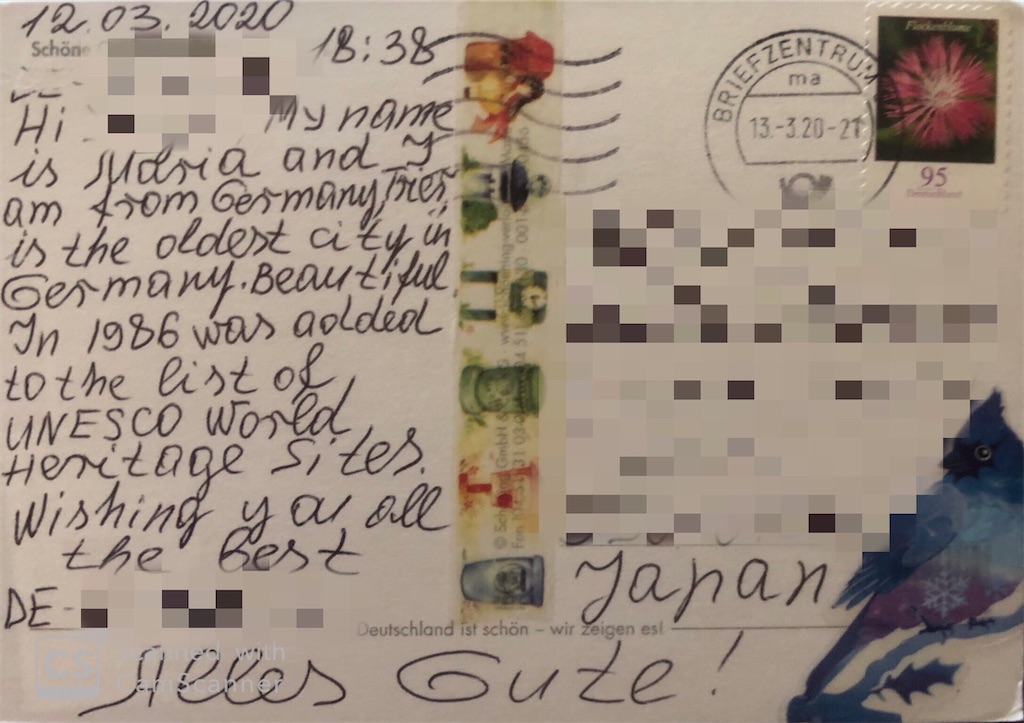 12.03.2020
Schöne
18:38
Hi My name
is Maria and I
am from Germany, Trier
is the oldest city in
Germany. Beautiful.
In 1986 was added
to the list of
UNESCO World
Heritage Sites.
Wishing you all
the Best
DE-
Alles Gute!
Deutschland ist schön – wir zeigen es!
BRIEFZENTRUM
ma
13.-3.20-21
Flockenblume
95
Deutschland
Japan
CS
Scanned with
CamScanner